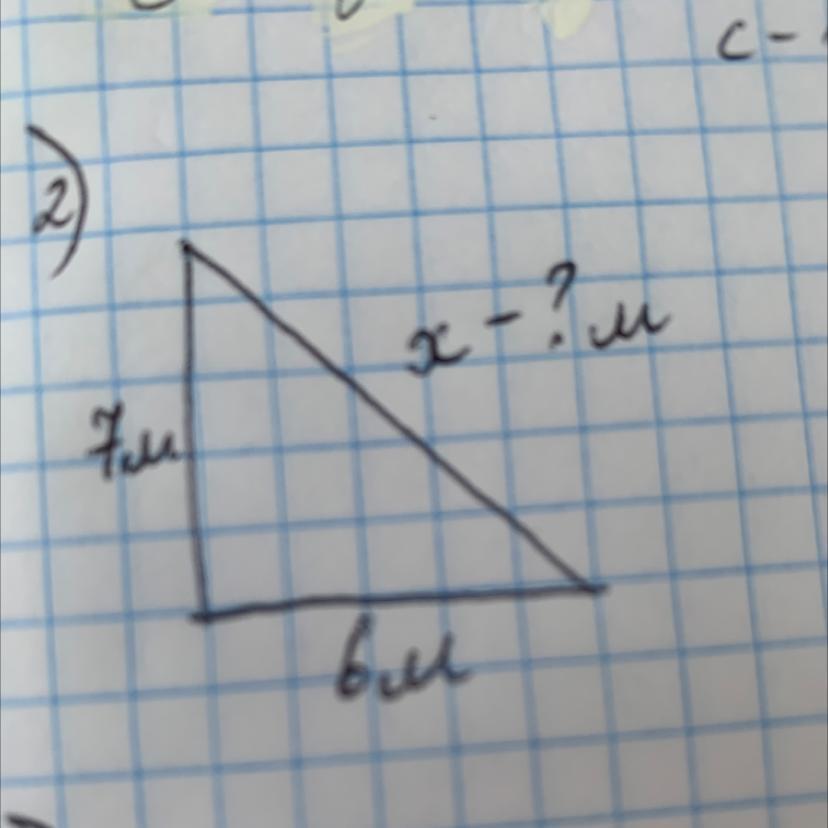 c -
2)
x - ? м
7м
6м